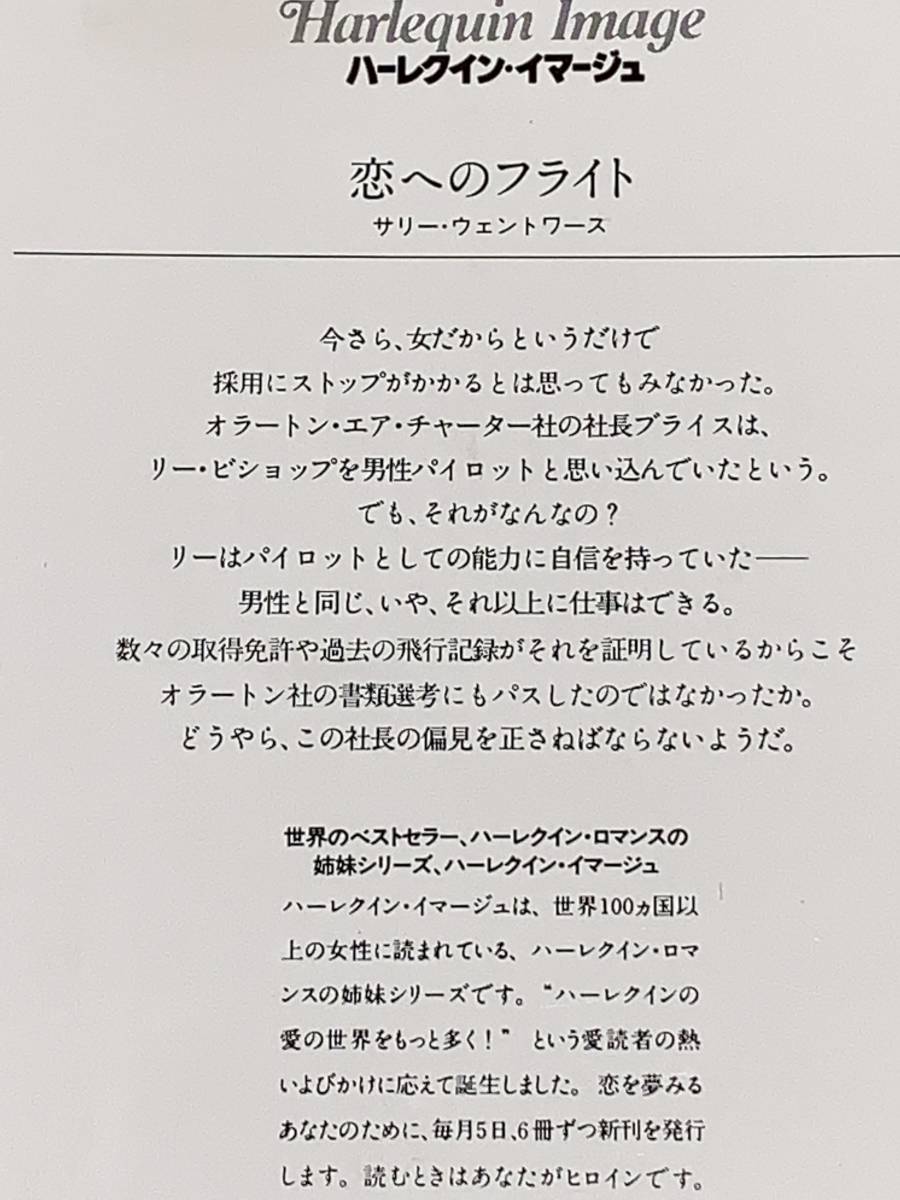 Harlequin Image
ハーレクイン・イマージュ
恋へのフライト
サリー・ウェントワース
今さら、女だからというだけで
採用にストップがかかるとは思ってもみなかった。
オラートン・エア・チャーター社の社長ブライスは、
リー・ビショップを男性パイロットと思い込んでいたという。
でも、それがなんなの？
リーはパイロットとしての能力に自信を持っていた——
男性と同じ、いや、それ以上に仕事はできる。
数々の取得免許や過去の飛行記録がそれを証明しているからこそ
オラートン社の書類選考にもパスしたのではなかったか。
どうやら、この社長の偏見を正さねばならないようだ。
世界のベストセラー、ハーレクイン・ロマンスの
姉妹シリーズ、ハーレクイン・イマージュ
ハーレクイン・イマージュは、世界100ヵ国以
上の女性に読まれている、ハーレクイン・ロマ
ンスの姉妹シリーズです。“ハーレクインの
愛の世界をもっと多く！”という愛読者の熱
いよびかけに応えて誕生しました。恋を夢みる
あなたのために、毎月5日、6冊ずつ新刊を発行
します。読むときはあなたがヒロインです。